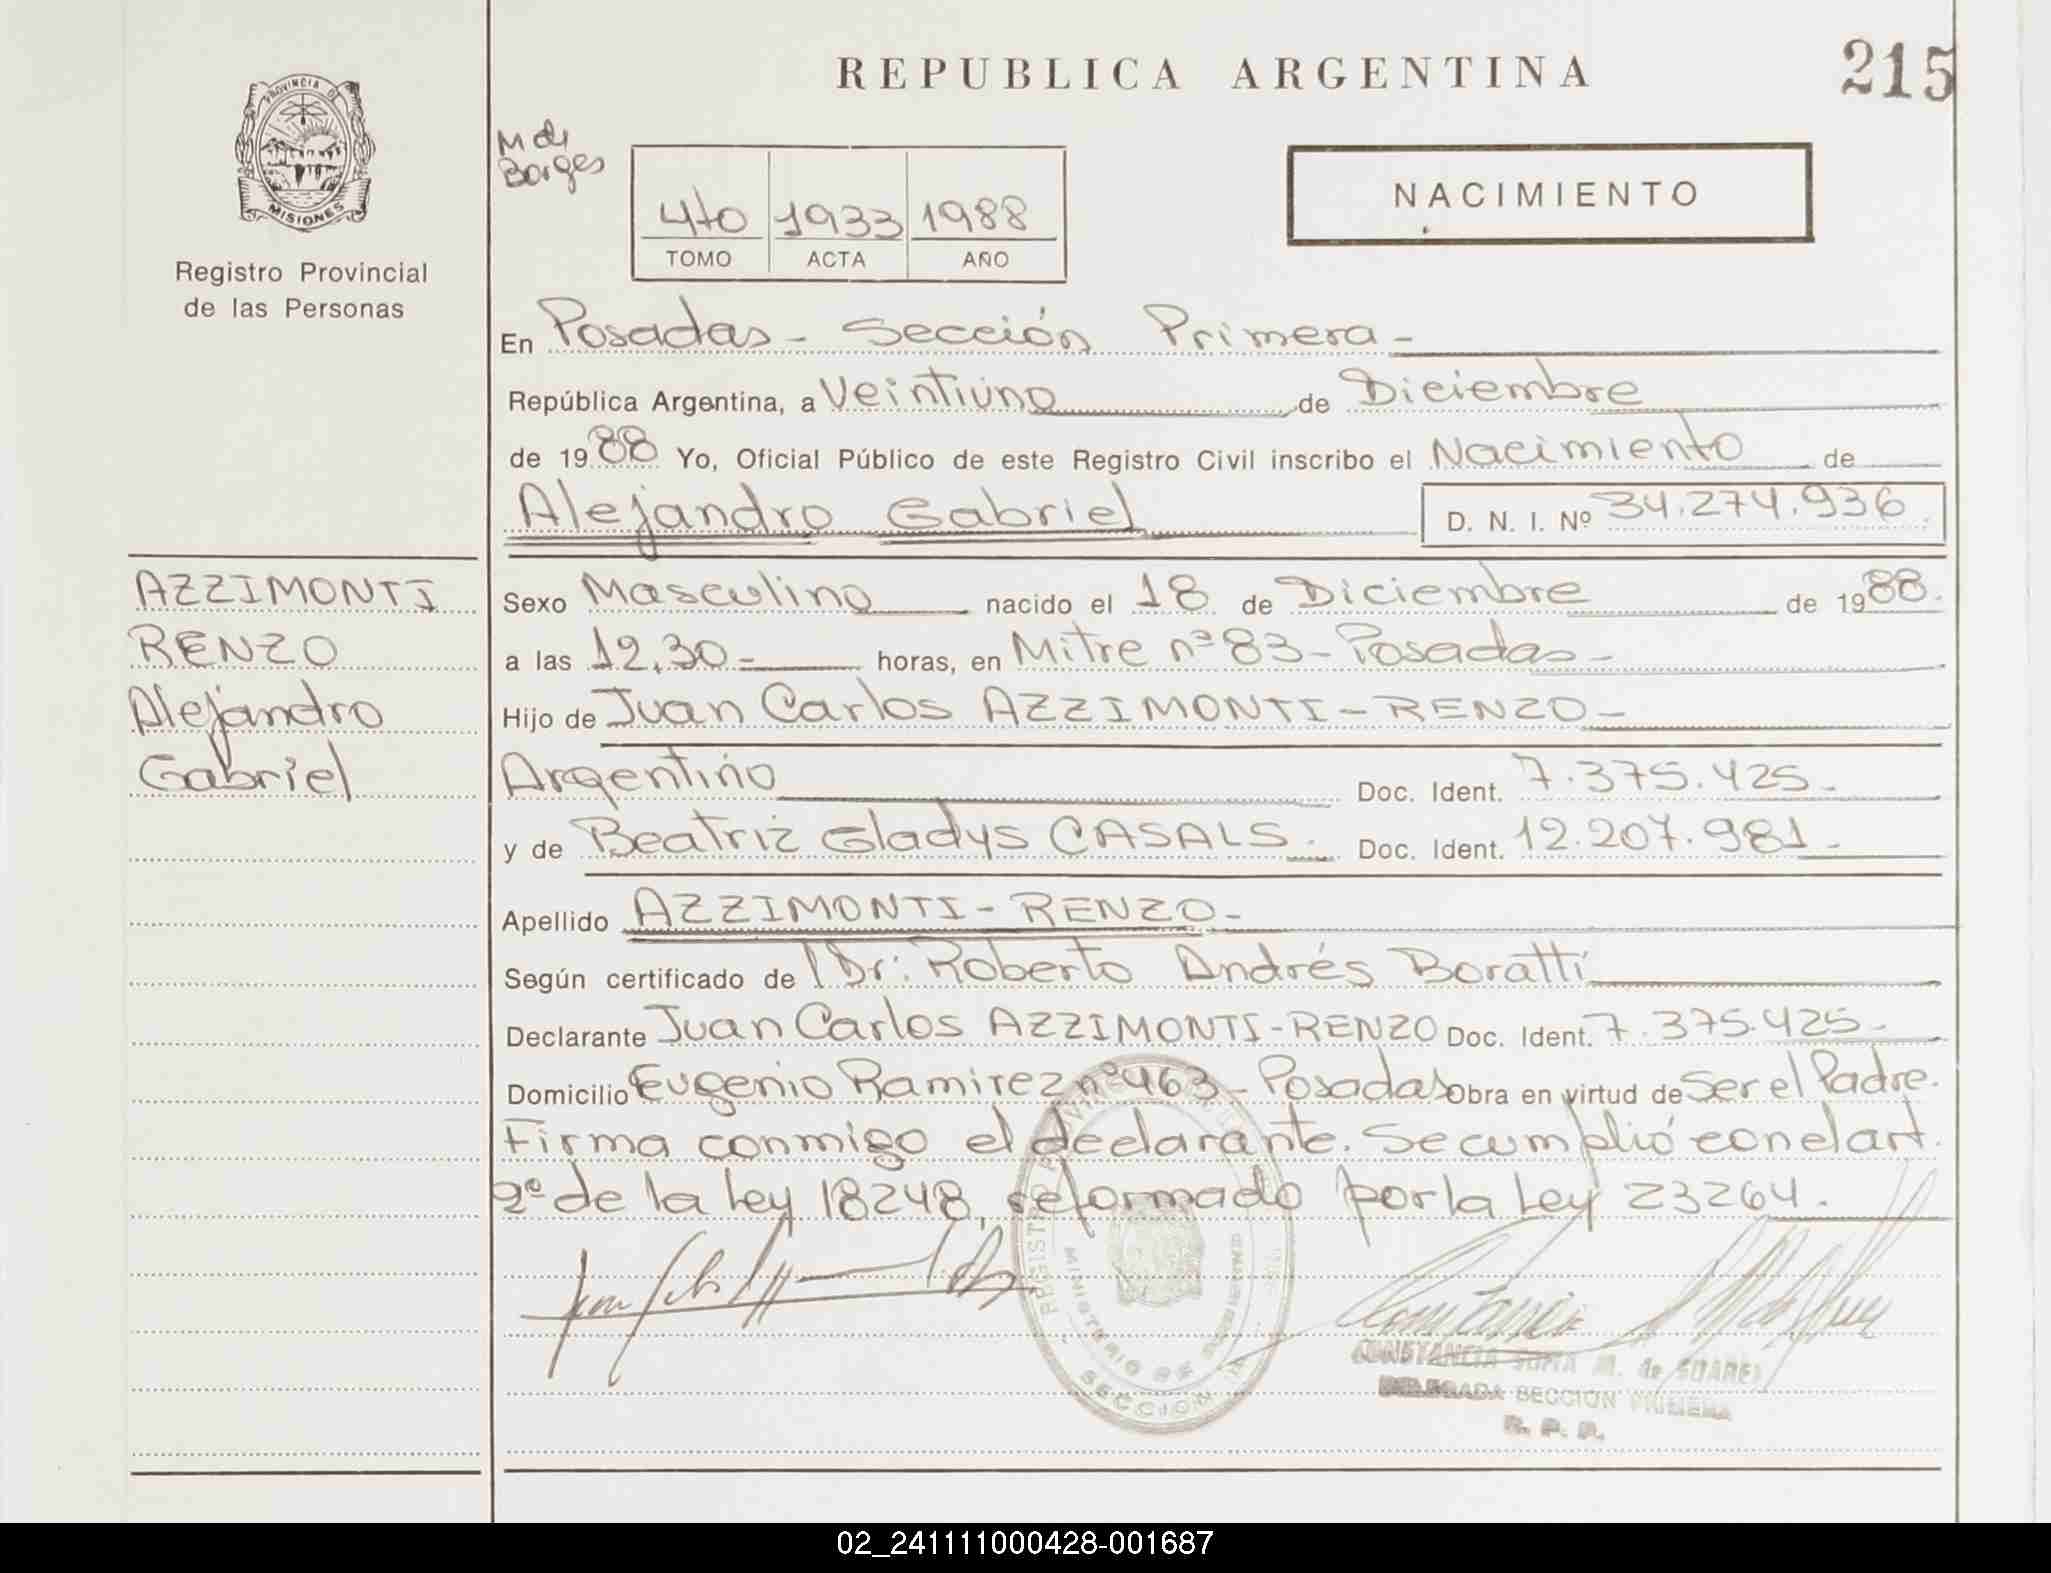 REPUBLICA ARGENTINA
215
PROVINCIA DE
MISIONES
Registro Provincial
de las Personas
M de
Borges
470 1933 1988
TOMO ACTA AÑO
NACIMIENTO
En Posadas - Sección Primera -
República Argentina, a Veintiuno de Diciembre
de 1988 Yo, Oficial Público de este Registro Civil inscribo el Nacimiento de
Alejandro Gabriel
D. N. I. Nº 34.274.936
AZZIMONTI
RENZO
Alejandro
Gabriel
Sexo Masculino nacido el 18 de Diciembre de 1988.
a las 12,30 - horas, en Mitre nº 83 - Posadas -
Hijo de Juan Carlos AZZIMONTI - RENZO -
Argentino Doc. Ident. 7.375.425 -
y de Beatriz Gladys CASALS. Doc. Ident. 12.207.981 -
Apellido AZZIMONTI - RENZO -
Según certificado de Dr: Roberto Andrés Boratti
Declarante Juan Carlos AZZIMONTI - RENZO Doc. Ident. 7.375.425 -
Domicilio Eugenio Ramirez nº 463 - Posadas Obra en virtud de Ser el Padre.
Firma conmigo el declarante. Se cumplió con el art.
2º de la Ley 18248, reformado por la Ley 23264.
REGISTRO
MINISTERIO DE
SECCION 1a
CONSTANCIA SOFIA M. de SUAREZ
DELEGADA SECCION PRIMERA
R. P. P.
02_241111000428-001687